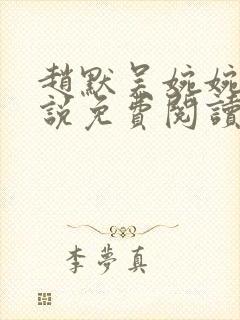 趙默吳婉婉
說免費閱讀
李夢真